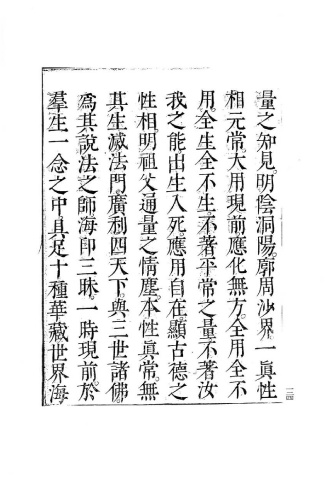 量之知見。明陰洞陽。廓周沙界。一眞性
相。元常大用現前應化無方。全用全不
用。全生全不生。不著平常之量不著汝
我之能出生入死應用自在。顯古德之
性相。明祖父通量之情塵。本性眞常。無
其生滅法門。廣利四天下。與三世諸佛
爲其說法之師海印三昧。一時現前。於
羣生一念之中。具足十種華藏世界海
二四